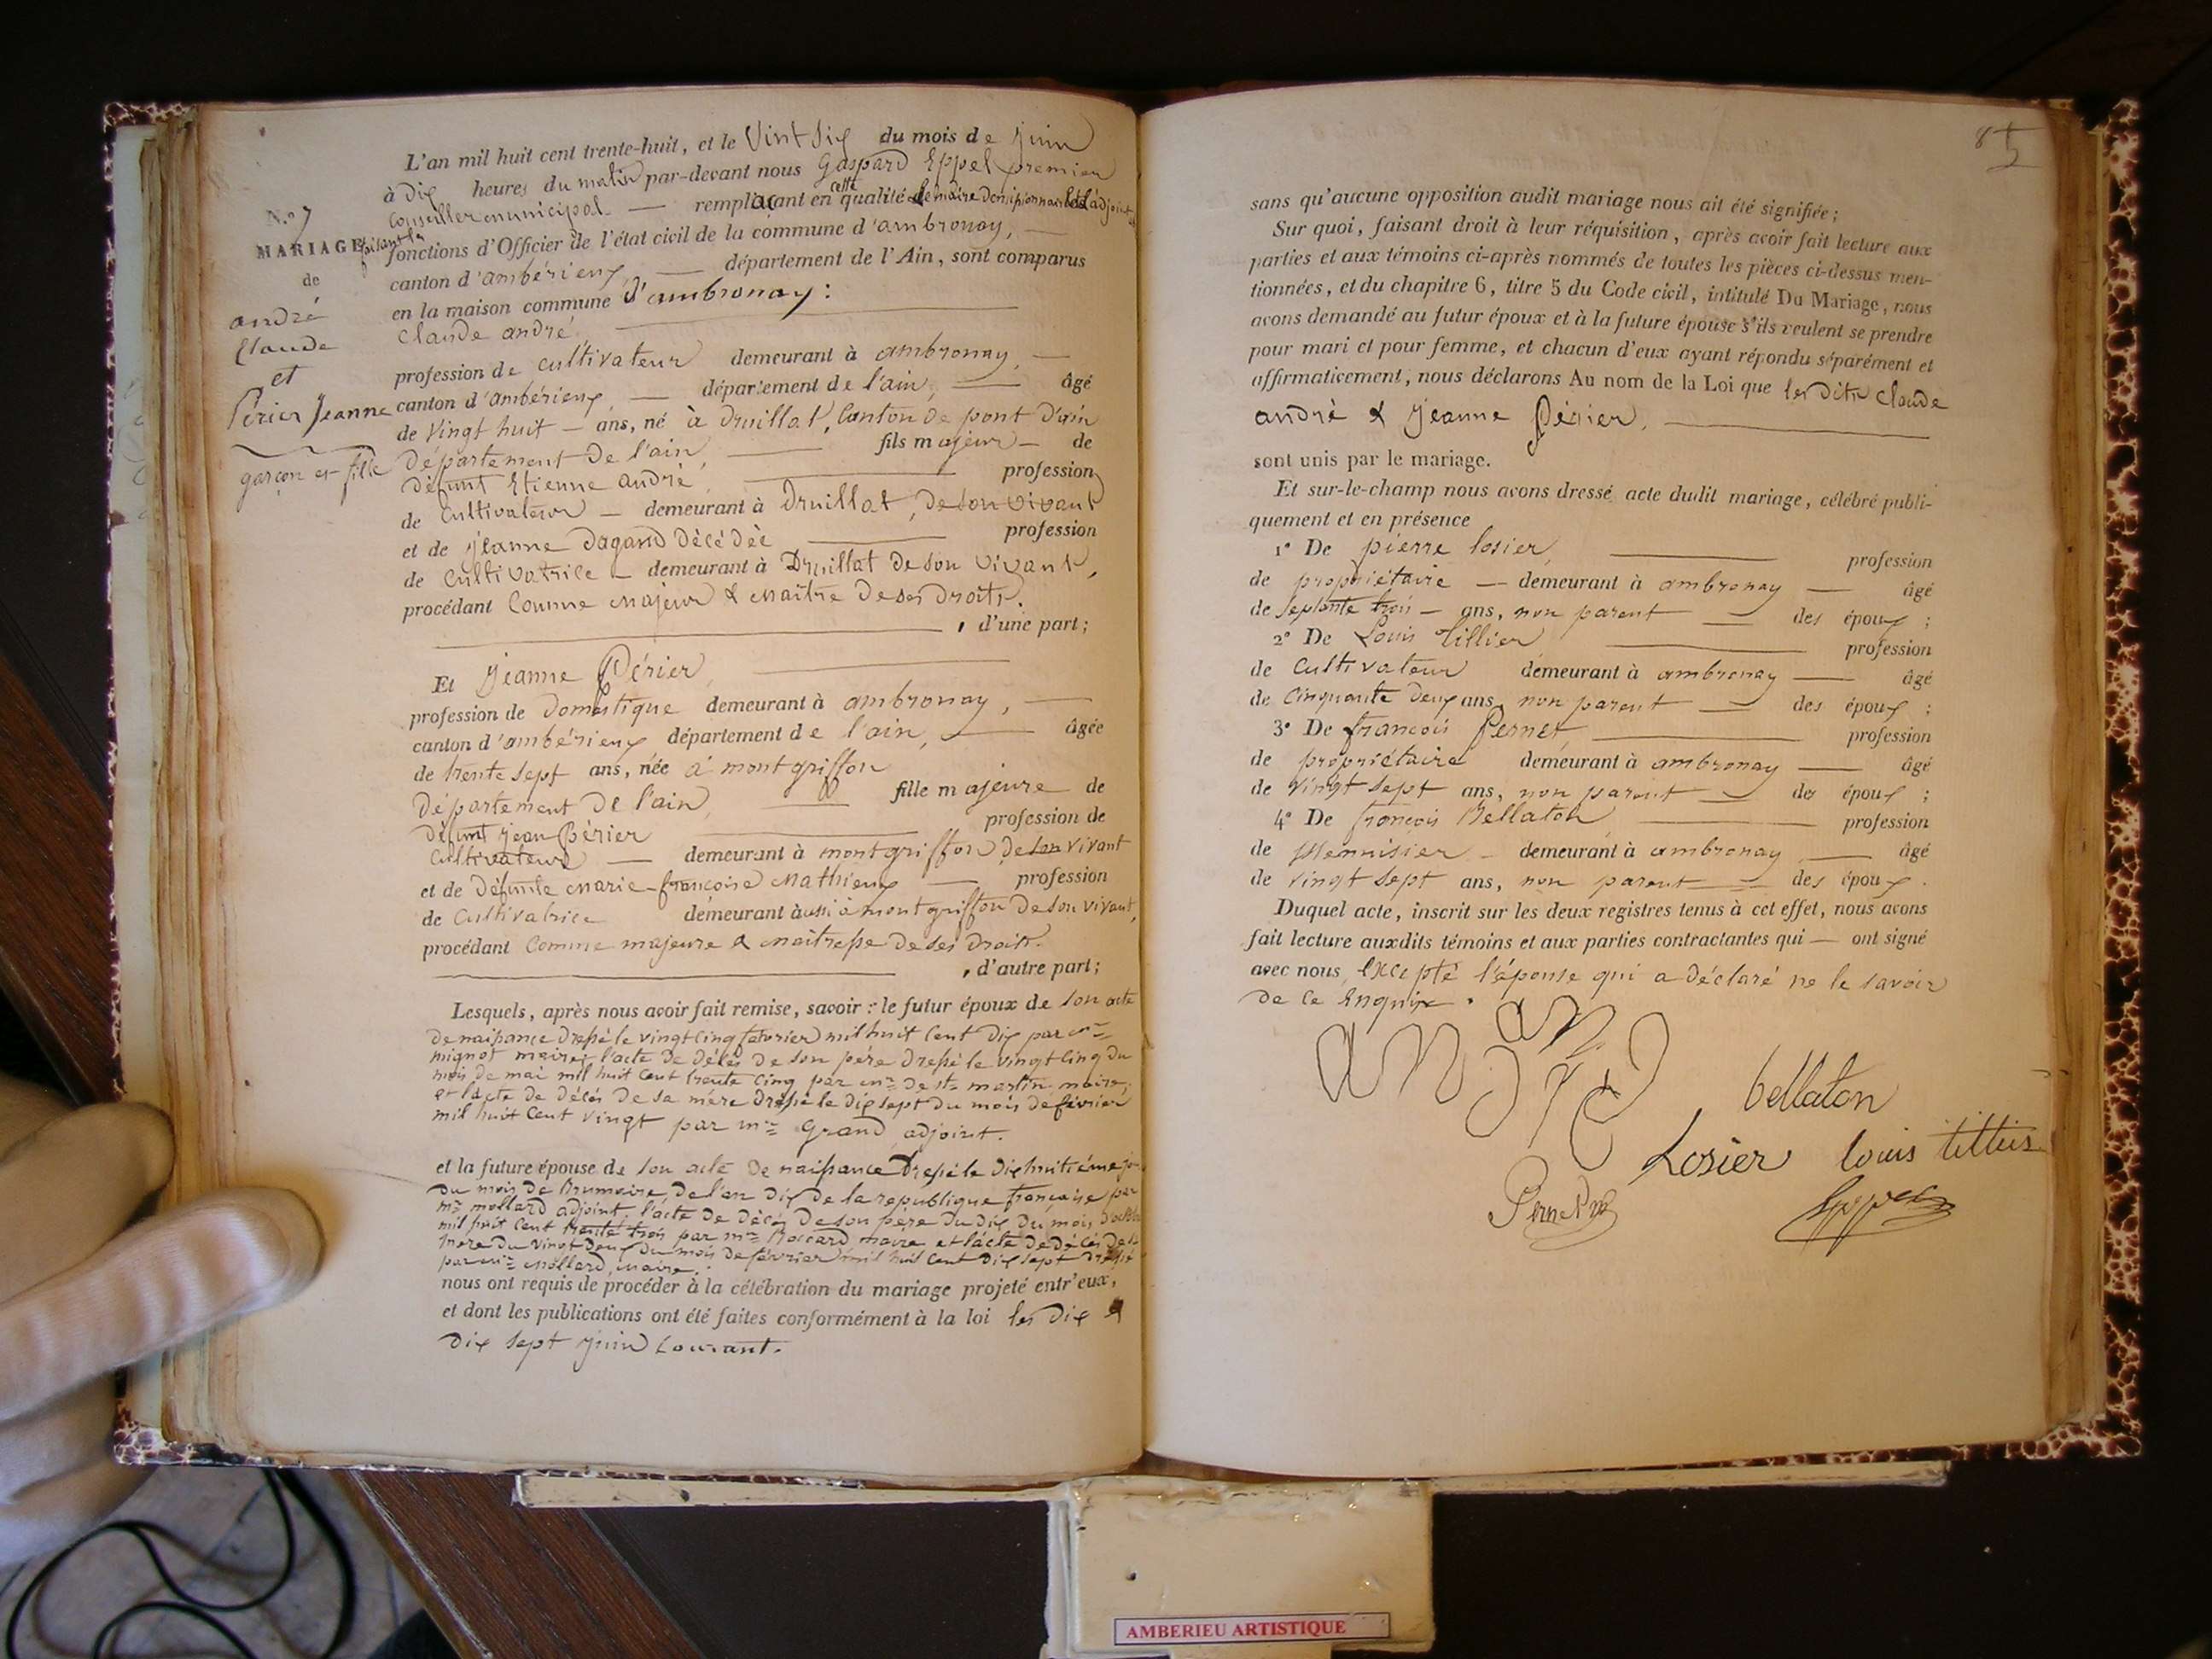 N.° 7
MARIAGE
de
andré
Claude
et
Périer Jeanne
garçon et fille
L'an mil huit cent trente-huit, et le Vint Six du mois de juin
à Dix heures du matin par-devant nous Gaspard Eppel premier
Conseiller municipal — remplaçant en cette qualité le maire démissionnaire et l'adjoint
faisant les fonctions d'Officier de l'état civil de la commune d'ambronay, —
canton d'ambérieux — département de l'Ain, sont comparus
en la maison commune d'ambronay :
Claude andré
profession de cultivateur demeurant à ambronay, —
canton d'ambérieux — département de l'ain, — âgé
de Vingt huit — ans, né à Druillat, Canton de pont D'ain
Département De l'ain, — fils majeur — de
Défunt Etienne andré, — profession
de Cultivateur — demeurant à Druillat, De son vivant
et de jeanne Dagand Décédée — profession
de Cultivatrice — demeurant à Druillat De son vivant,
procédant Comme majeur & maître De ses Droits.
, d'une part ;
Et Jeanne Périer,
profession de Domestique demeurant à ambronay, —
canton d'ambérieux département de l'ain, — âgée
de trente sept ans, née à montgriffon
Département De l'ain, — fille majeure de
Défunt jean Périer — profession de
Cultivateur — demeurant à montgriffon De son vivant
et de Défunte marie-françoise Mathieux — profession
de Cultivatrice demeurant aussi à montgriffon De son vivant,
procédant Comme majeure & maîtresse De ses Droits.
, d'autre part ;
Lesquels, après nous avoir fait remise, savoir : le futur époux de son acte
De naissance Dressé le vingt cinq février mil huit Cent Dix par mr
mignot maire, l'acte De Décès De son père Dressé le vingt cinq Du
mois De mai mil huit Cent trente cinq par mr De st martin maire,
et l'acte De Décès De sa mère Dressé le Dix sept Du mois De février
mil huit Cent vingt par mr Grand adjoint.
et la future épouse de son acte De naissance Dressé le Dix huitième
Du mois De Brumaire, De l'an Dix De la republique française par
mr mollard adjoint, l'acte De Décès De son père Du Dix Du mois
mil huit Cent trente trois par mr Boccard maire et l'acte De Décès De
mère Du vingt Deux Du mois De février mil huit Cent Dix sept Dressé
par mr Mollard, maire.
nous ont requis de procéder à la célébration du mariage projeté entr'eux,
et dont les publications ont été faites conformément à la loi les Dix &
Dix sept juin Courant.
85
sans qu'aucune opposition audit mariage nous ait été signifiée ;
Sur quoi, faisant droit à leur réquisition, après avoir fait lecture aux
parties et aux témoins ci-après nommés de toutes les pièces ci-dessus men-
tionnées, et du chapitre 6, titre 5 du Code civil, intitulé Du Mariage, nous
avons demandé au futur époux et à la future épouse s'ils veulent se prendre
pour mari et pour femme, et chacun d'eux ayant répondu séparément et
affirmativement, nous déclarons Au nom de la Loi que les Dits Claude
andré & Jeanne Périer,
sont unis par le mariage.
Et sur-le-champ nous avons dressé acte dudit mariage, célébré publi-
quement et en présence
1° De pierre losier, — profession
de propriétaire — demeurant à ambronay — âgé
de septante trois — ans, non parent — des époux ;
2° De Louis tillier — profession
de Cultivateur demeurant à ambronay — âgé
de Cinquante deux ans, non parent — des époux ;
3° De françois Pernet, — profession
de propriétaire demeurant à ambronay — âgé
de Vingt sept ans, non parent — des époux ;
4° De françois Bellaton, — profession
de Mennisier — demeurant à ambronay — âgé
de vingt sept ans, non parent — des époux.
Duquel acte, inscrit sur les deux registres tenus à cet effet, nous avons
fait lecture auxdits témoins et aux parties contractantes qui — ont signé
avec nous, Excepté l'épouse qui a déclaré ne le savoir
de ce Enquise.
andré
bellaton
Losier louis
Pernet
Eppel
AMBERIEU ARTISTIQUE